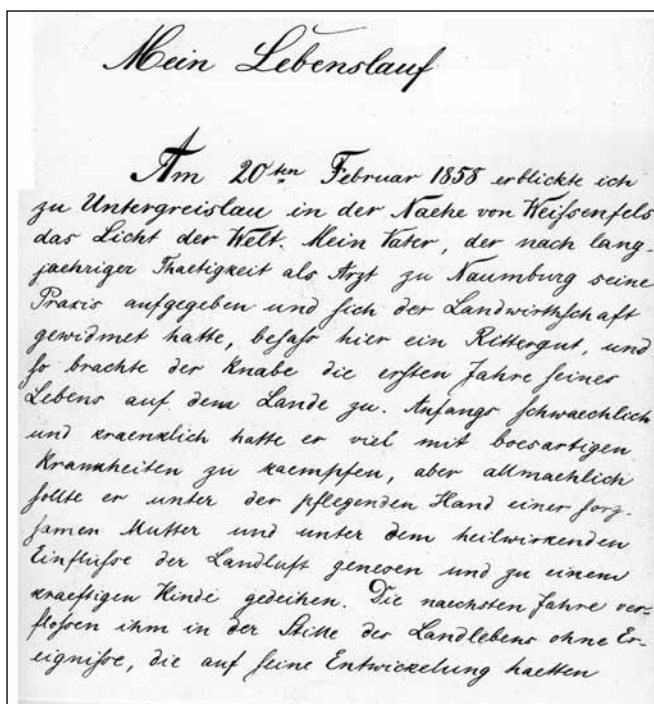 Mein Lebenslauf
Am 20ten Februar 1858 erblickte ich
zu Untergreislau in der Naehe von Weissenfels
das Licht der Welt. Mein Vater, der nach lang-
jaehriger Thaetigkeit als Arzt zu Naumburg seine
Praxis aufgegeben und sich der Landwirthschaft
gewidmet hatte, besass hier ein Rittergut, und
so brachte der Knabe die ersten Jahre seines
Lebens auf dem Lande zu. Anfangs schwaechlich
und kraenklich hatte er viel mit boesartigen
Krankheiten zu kaempfen, aber allmaehlich
sollte er unter der pflegenden Hand einer sorg-
samen Mutter und unter dem heilwirkenden
Einflusse der Landluft genesen und zu einem
kraeftigen Kinde gedeihen. Die naechsten Jahre ver-
flossen ihm in der Stille des Landlebens ohne Er-
eignisse, die auf seine Entwickelung haetten